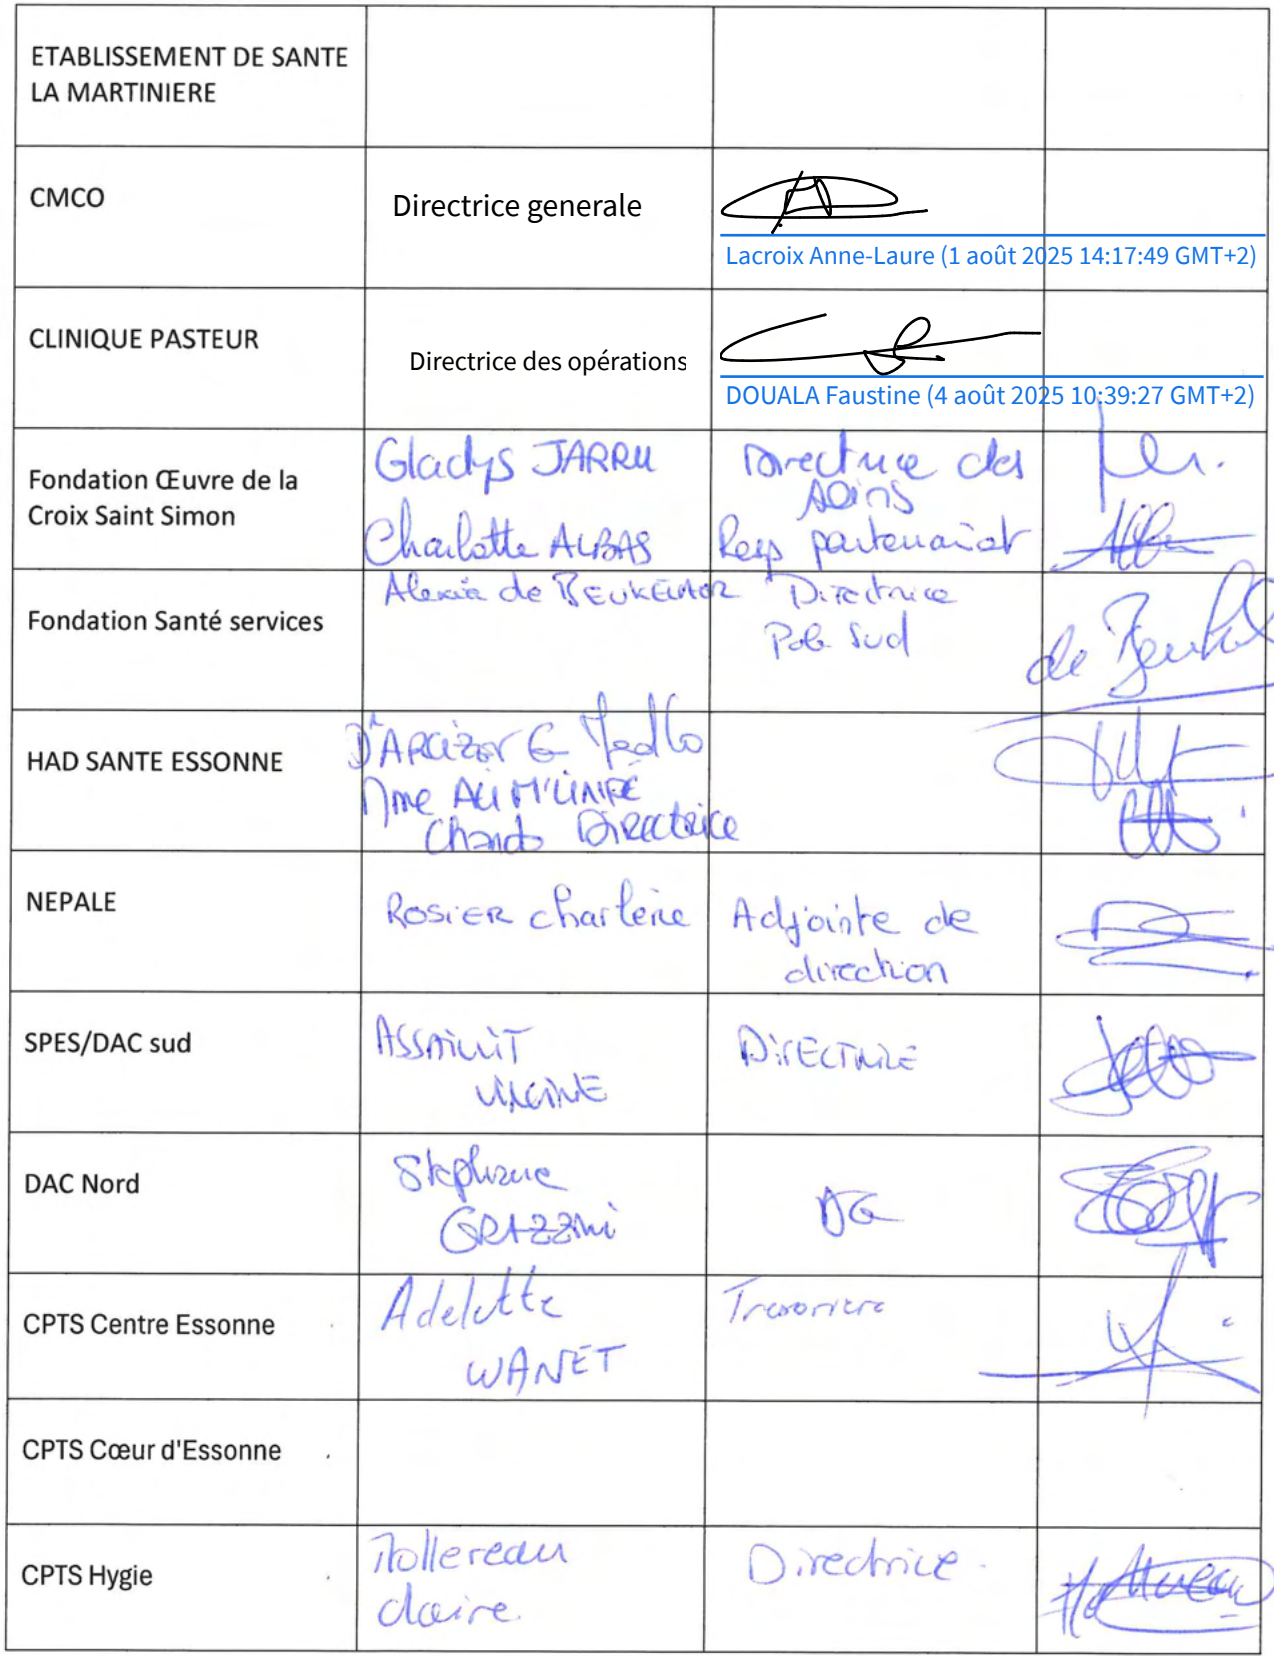 ETABLISSEMENT DE SANTE
LA MARTINIERE
CMCO
Directrice generale
Lacroix Anne-Laure (1 août 2025 14:17:49 GMT+2)
CLINIQUE PASTEUR
Directrice des opérations
DOUALA Faustine (4 août 2025 10:39:27 GMT+2)
Fondation Œuvre de la
Croix Saint Simon
Gladys JARRU
Charlotte ALBAS
Directrice des
soins
Resp partenariat
Fondation Santé services
Alexia de BEUKELAER
Directrice
Pole Sud
de
HAD SANTE ESSONNE
Mme ALI M'LINIFE
Directrice
NEPALE
ROSIER charlène
Adjointe de
direction
SPES/DAC sud
ASSAILLIT
DIRECTRICE
DAC Nord
Stephane
GRAZZINI
DG
CPTS Centre Essonne
Adelette
WANET
Tresoriere
CPTS Cœur d'Essonne
CPTS Hygie
Hollereau
claire
Directrice